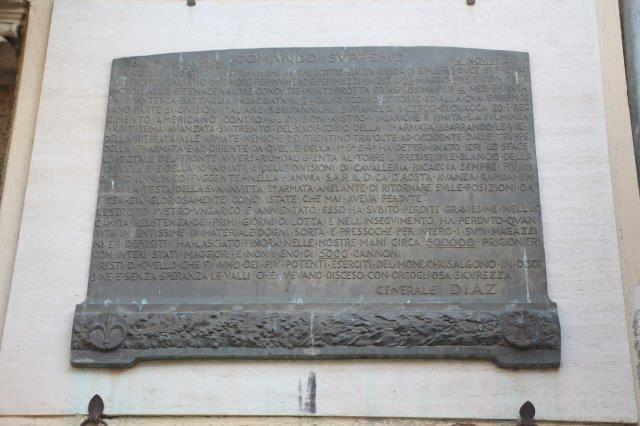 COMANDO SVPREMO
4 NOV. 1918
LA GVERRA CONTRO L'AVSTRIA-VNGHERIA CHE SOTTO L'ALTA GVIDA DI S.M. IL RE DVCE SVPREMO
L'ESERCITO ITALIANO INFERIORE PER NVMERO E PER MEZZI INIZIÒ IL 24 MAGGIO 1915 E CON FEDE
INCROLLABILE E TENACE VALORE CONDVSSE ININTERROTTA ED ASPRISSIMA PER 41 MESI È VINTA
LA GIGANTESCA BATTAGLIA INGAGGIATA IL 24 DELLO SCORSO OTTOBRE ED ALLA QVALE PRENDE
VANO PARTE 51 DIVISIONI ITALIANE 3 BRITANNICHE 2 FRANCESI 1 CZECO SLOVACCA ED 1 REG
GIMENTO AMERICANO CONTRO 63 DIVISIONI AVSTRO-VNGARICHE È FINITA LA FVLMINEA
ARDITISSIMA AVANZATA SV TRENTO DEL XXIX° CORPO DELLA 1ª ARMATA SBARRANDO LE VIE
DELLA RITIRATA ALLE ARMATE NEMICHE DEL TRENTINO TRAVOLTE AD OCCIDENTE DALLE TRVPPE
DELLA 7ª ARMATA E AD ORIENTE DA QVELLE DELLA 1ª 6ª E 4ª HA DETERMINATO IERI LO SFACE
LO TOTALE DEL FRONTE AVVERSARIO DAL BRENTA AL TORRE L'IRRESISTIBILE SLANCIO DELLA
DELL'8ª E DELLA 10ª ARMATA E DELLE DIVISIONI DI CAVALLERIA RICACCIA SEMPRE PIV IN
DIETRO IL NEMICO FVGGENTE NELLA PIANVRA S.A.R. IL DVCA D'AOSTA AVANZA RAPIDAMEN
TE ALLA TESTA DELLA SVA INVITTA 3ª ARMATA ANELANTE DI RITORNARE SVLLE POSIZIONI DA
ESSA GIÀ GLORIOSAMENTE CONQVISTATE CHE MAI AVEVA PERDVTE
L'ESERCITO AVSTRO-VNGARICO È ANNIENTATO ESSO HA SVBITO PERDITE GRAVISSIME NELL'AC
CANITA RESISTENZA DEI PRIMI GIORNI DI LOTTA E NELL'INSEGVIMENTO HA PERDVTO QVAN
TITÀ INGENTISSIME DI MATERIALE D'OGNI SORTA E PRESSOCHÉ PER INTERO I SVOI MAGAZZI
NI E I DEPOSITI HA LASCIATO FINORA NELLE NOSTRE MANI CIRCA 300000 PRIGIONIERI
CON INTERI STATI MAGGIORI E NON MENO DI 5000 CANNONI
I RESTI DI QVELLO CHE FV VNO DEI PIV POTENTI ESERCITI DEL MONDO RISALGONO IN DISOR
DINE E SENZA SPERANZA LE VALLI CHE AVEVANO DISCESO CON ORGOGLIOSA SICVREZZA
GENERALE DIAZ